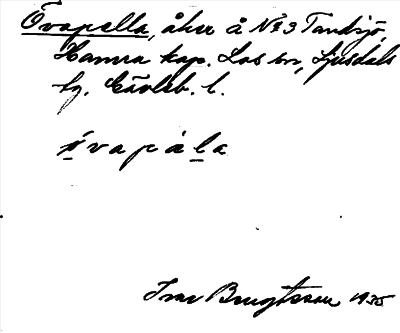 Övapella, åker å No 3 Tandsjö,
Hamra kap. Los sn, Ljusdals
tg. Gävleb. l.
övapàla
Ivar Bengtsson 1935